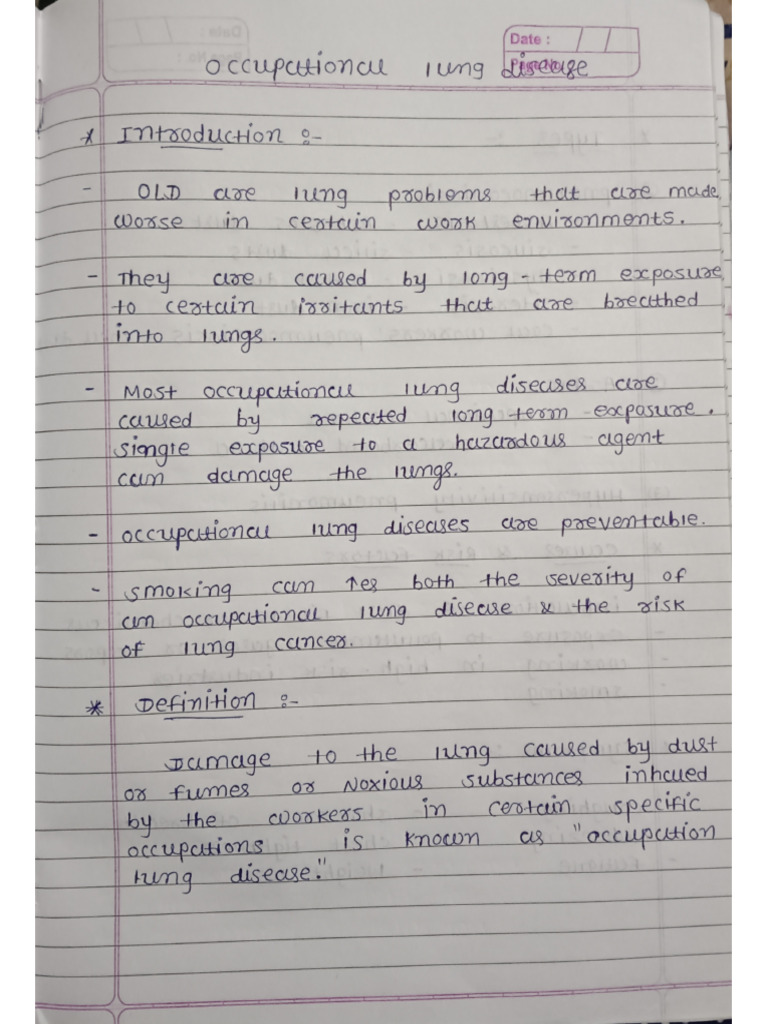 Date :
Page No.
Occupational lung disease
* Introduction :-
- OLD are lung problems that are made
worse in certain work environments.
- They are caused by long-term exposure
to certain irritants that are breathed
into lungs.
- Most occupational lung diseases are
caused by repeated long term exposure.
single exposure to a hazardous agent
can damage the lungs.
- occupational lung diseases are preventable.
- smoking can ↑es both the severity of
an occupational lung disease & the risk
of lung cancer.
* Definition :-
Damage to the lung caused by dust
or fumes or Noxious substances inhaled
by the workers in certain specific
occupations is known as "occupation
lung disease."